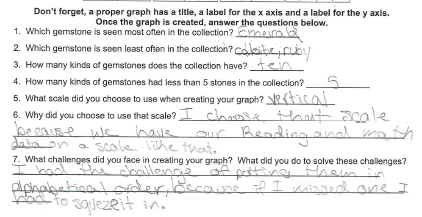 Don't forget, a proper graph has a title, a label for the x axis and a label for the y axis.
Once the graph is created, answer the questions below.
1. Which gemstone is seen most often in the collection? Emerald
2. Which gemstone is seen least often in the collection? calsite, ruby
3. How many kinds of gemstones does the collection have? ten
4. How many gemstones had less than 5 stones in the collection? 5
5. What scale did you choose to use when creating your graph? vertical
6. Why did you choose to use that scale? I choose that scale
because we have our Reading and math
data on a scale like that.
7. What challenges did you face in creating your graph? What did you do to solve these challenges?
I had the challenge of putting them in
alphabetical order, because if I missed one I
had to squeze it in.